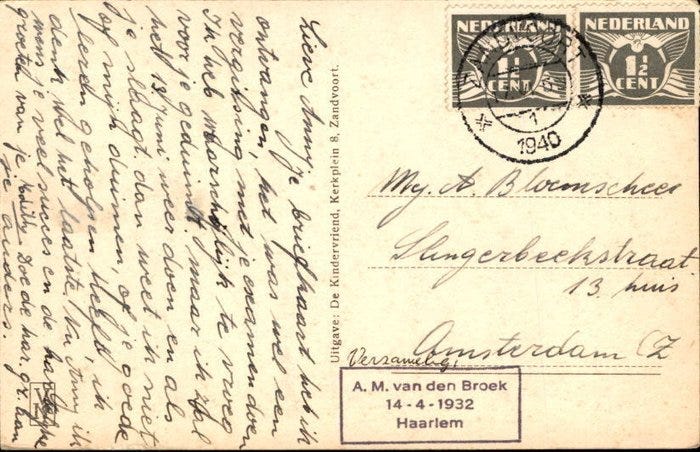 Lieve Anny je briefkaart heb ik
ontvangen, het was wel een
vergissing met je examen doen
Ik heb waarschijnlijk te vroeg
voor je geduimd. maar ik zal
het 13 juni weer doen en als
je slaagt dan weet ik niet
of mijn duimen, of je goede
leeren geholpen heeft, ik
denk wel het laatste. Nu Anny ik
wens je veel succes en de
groeten van je Doe de har. gr. aan
je anders.
Uitgave: De Kindervriend, Kerkplein 8, Zandvoort.
NEDERLAND
1½
CENT
NEDERLAND
1½
CENT
ZANDVOORT
1
1940
Mej. A. Bloemscheer
Slingerbeekstraat
13 huis
Amsterdam Z
Verzameling
A. M. van den Broek
14-4-1932
Haarlem